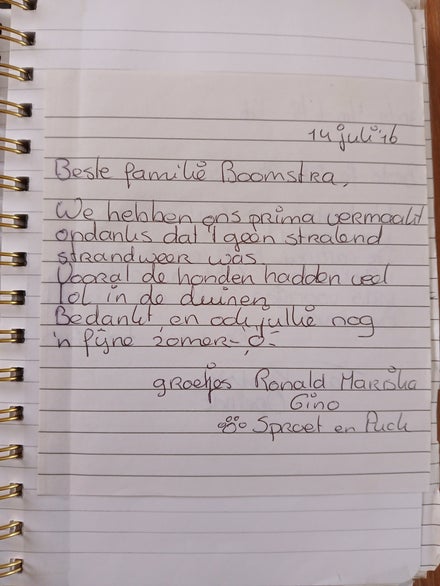 14 juli '16
Beste familie Boomstra,
We hebben ons prima vermaakt
ondanks dat 't geen stralend
strandweer was.
Vooral de honden hadden veel
lol in de duinen
Bedankt, en ook jullie nog
'n fijne zomer
groetjes Ronald Mariska
Gino
Sproet en Puck